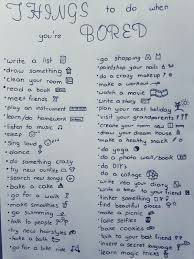 THINGS to do when
you're BORED
*write a list
*draw something
*clean your room
*read a book
*meet friends
*play an instrument
*learn/do homework
*listen to music
*sleep
*sing loud
*dance
*do something crazy
*try new outfits
*search new songs
*bake a cake
*go for a walk
*make smoothies
*go swimming
*talk to people
*try new hairstyles
*take a bath
*go for a bike ride
*go shopping
*paint your nails
*do a crazy makeup
*make a workout
*watch a movie
*write a story
*plan your holiday
*visit your grandparents
*create your own
*draw your dream house
*make healthy snacks
*do yoga
*do a photo wall/book
*do DIYs
*do a collage
*write into your diary
*write a letter to your friend
*tinker something
*find beautiful places
*make a picnic
*color selfies
*bake cookies
*talk to your best friend
*invent a secret language
*learn magic tricks